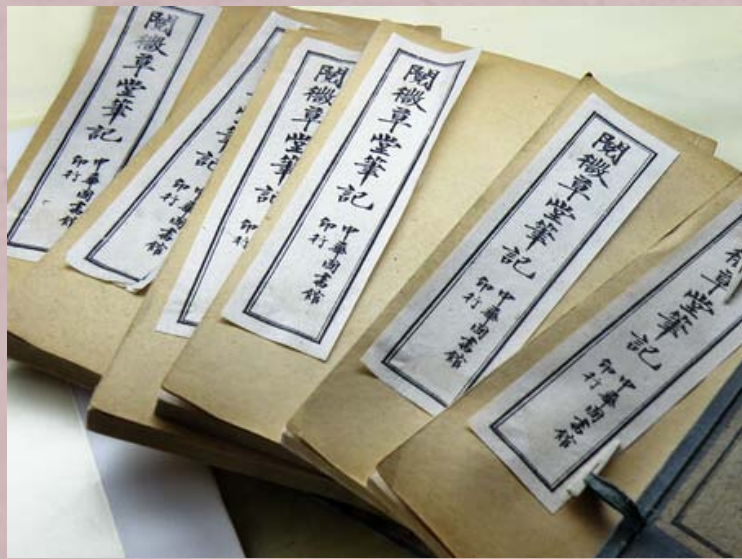 閱微草堂筆記
中華圖書館
印行
記
中華
印行
閱微草堂筆記
印行
閱微草堂筆記
中華圖書館
印行
閱微草堂筆記
中華圖書館
印行
草堂筆記
中華圖書館
印行